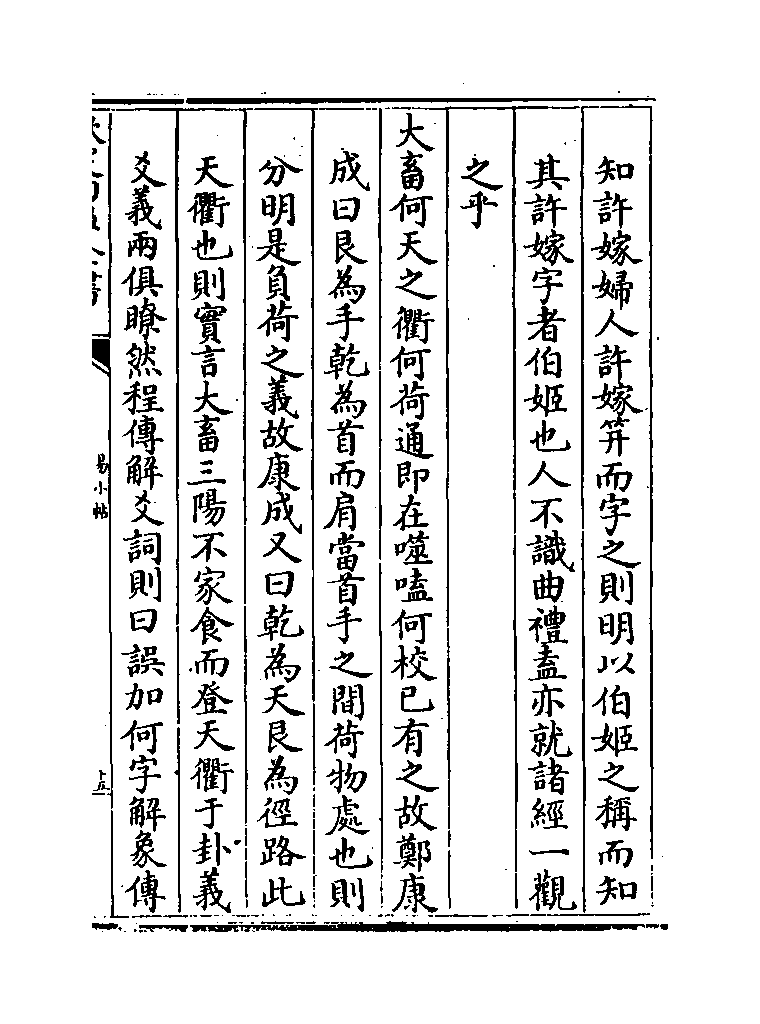 知許嫁婦人許嫁笄而字之則明以伯姬之稱而知
其許嫁字者伯姬也人不識曲禮盍亦就諸經一觀
之乎
大畜何天之衢何荷通即在噬嗑何校已有之故鄭康
成曰艮為手乾為首而肩當首手之間荷物處也則
分明是負荷之義故康成又曰乾為天艮為徑路此
天衢也則實言大畜三陽不家食而登天衢于卦義
爻義兩俱瞭然程傳解爻詞則曰誤加何字解象傳
易小帖
十五